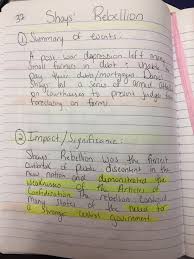 Shays' Rebellion
① Summary of Events:
A post war depression left many
small farmers in debt & unable
pay their debts/mortgages. Daniel
Shays led a series of armed attacks
on courthouses to prevent judges
foreclosing on farms.
② Impact/Significance:
Shays Rebellion was the
outbreak of public discontent in the
new nation and demonstrated the
weaknesses of the Articles of
Confederation. The rebellion convinced
many states of the need to
a stronger central government